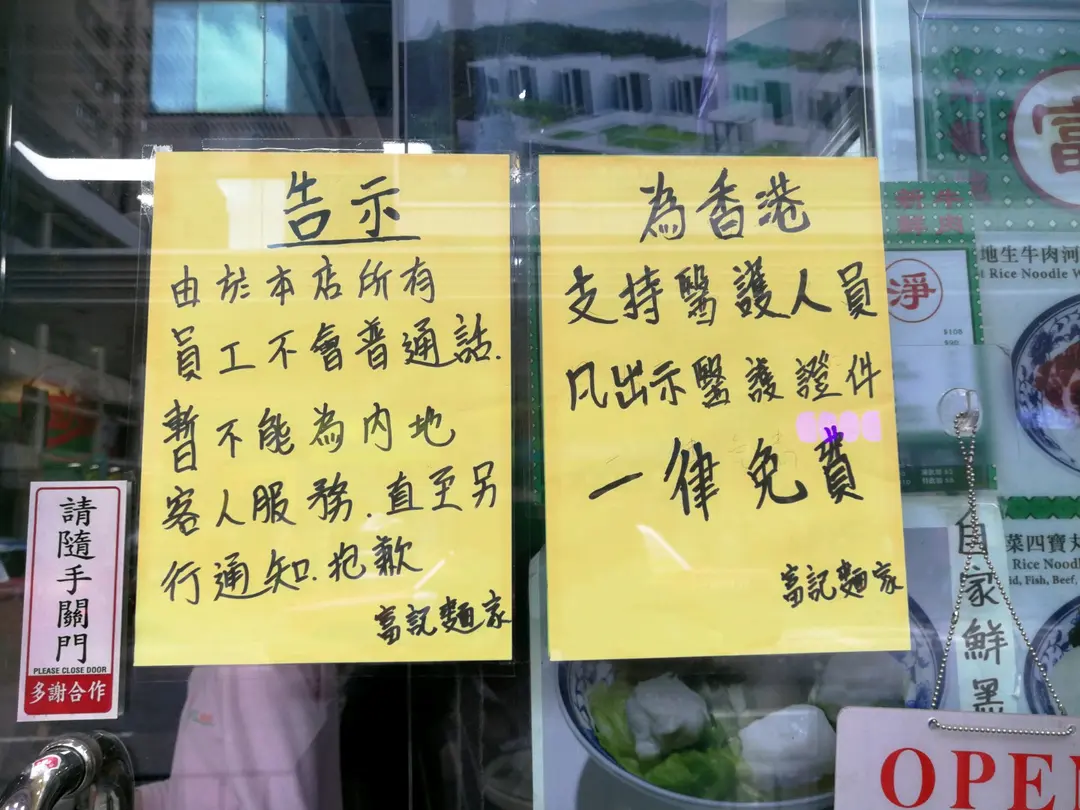 告示
由於本店所有
員工不會普通話.
暫不能為內地
客人服務.直至另
行通知.抱歉
富記麵家
為香港
支持醫護人員
凡出示醫護證件
一律免費
富記麵家
請隨手關門
PLEASE CLOSE DOOR
多謝合作
富
新牛
鮮肉
淨
地生牛肉河
Rice Noodle W
菜四寶丸
Rice Nood
id, Fish, Beef,
自家鮮黑
OPEN